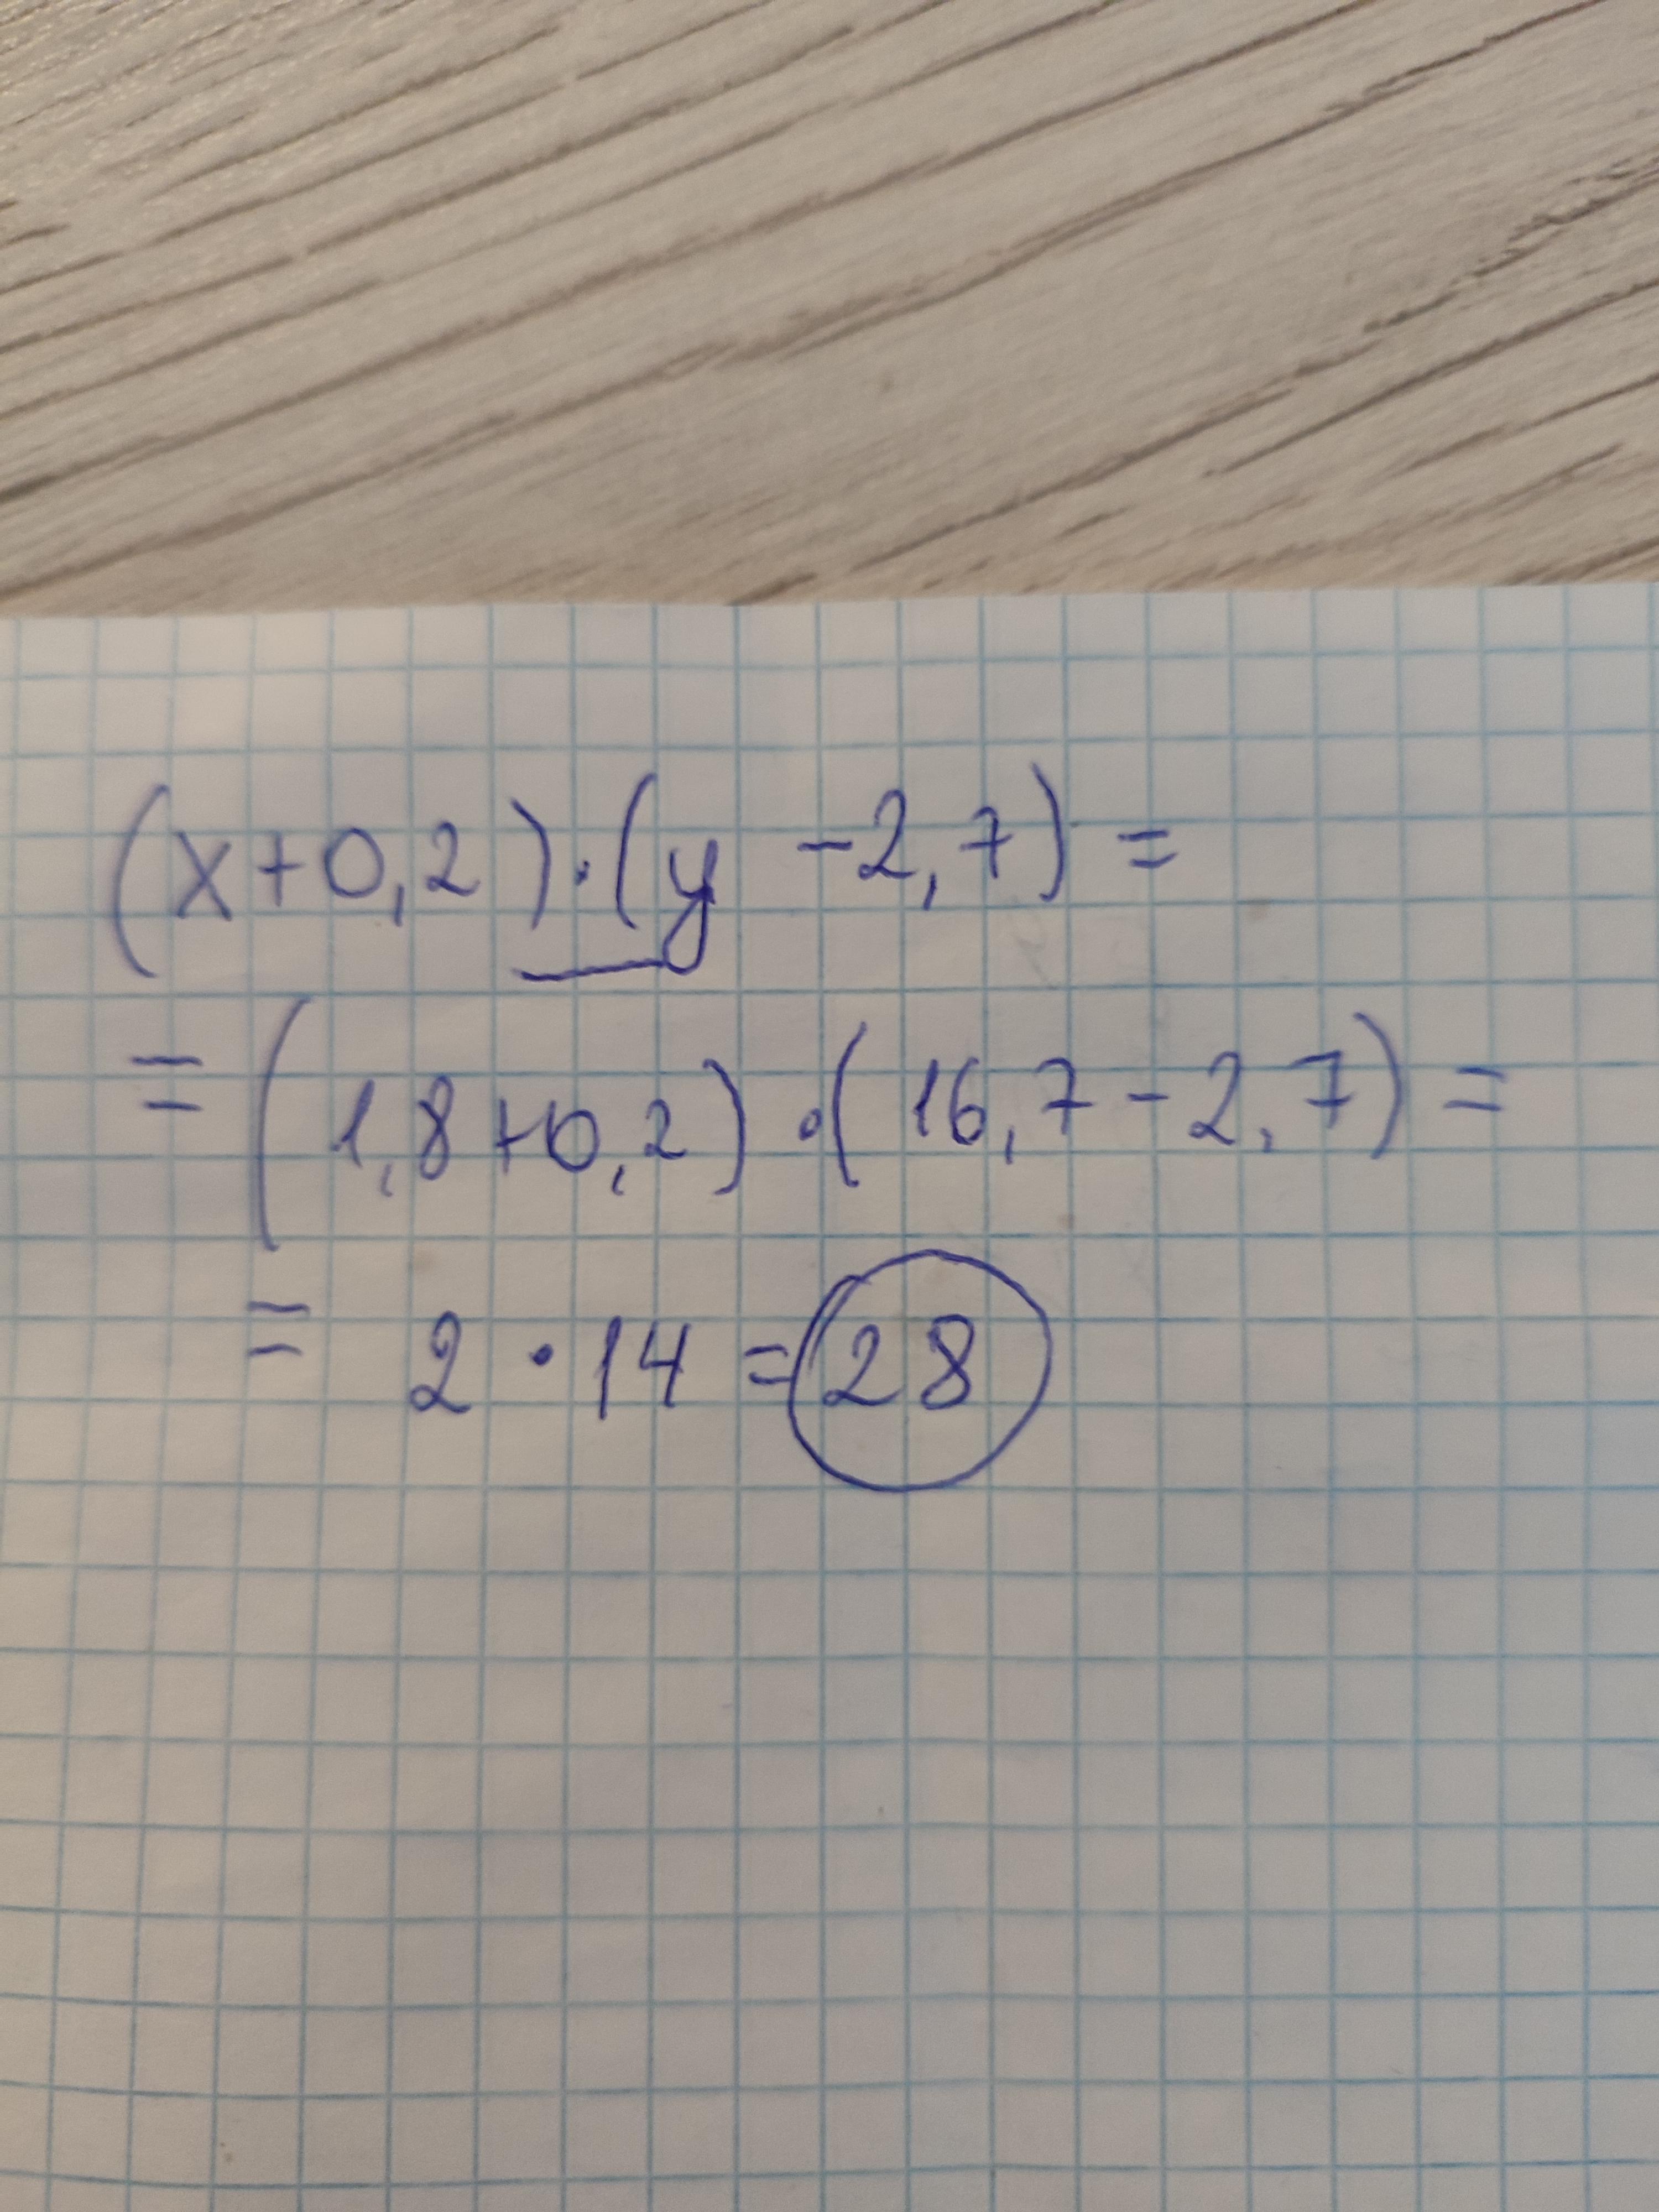 (x+0,2)·(y -2,7)=
=(1,8+0,2)·(16,7-2,7)=
= 2·14=28